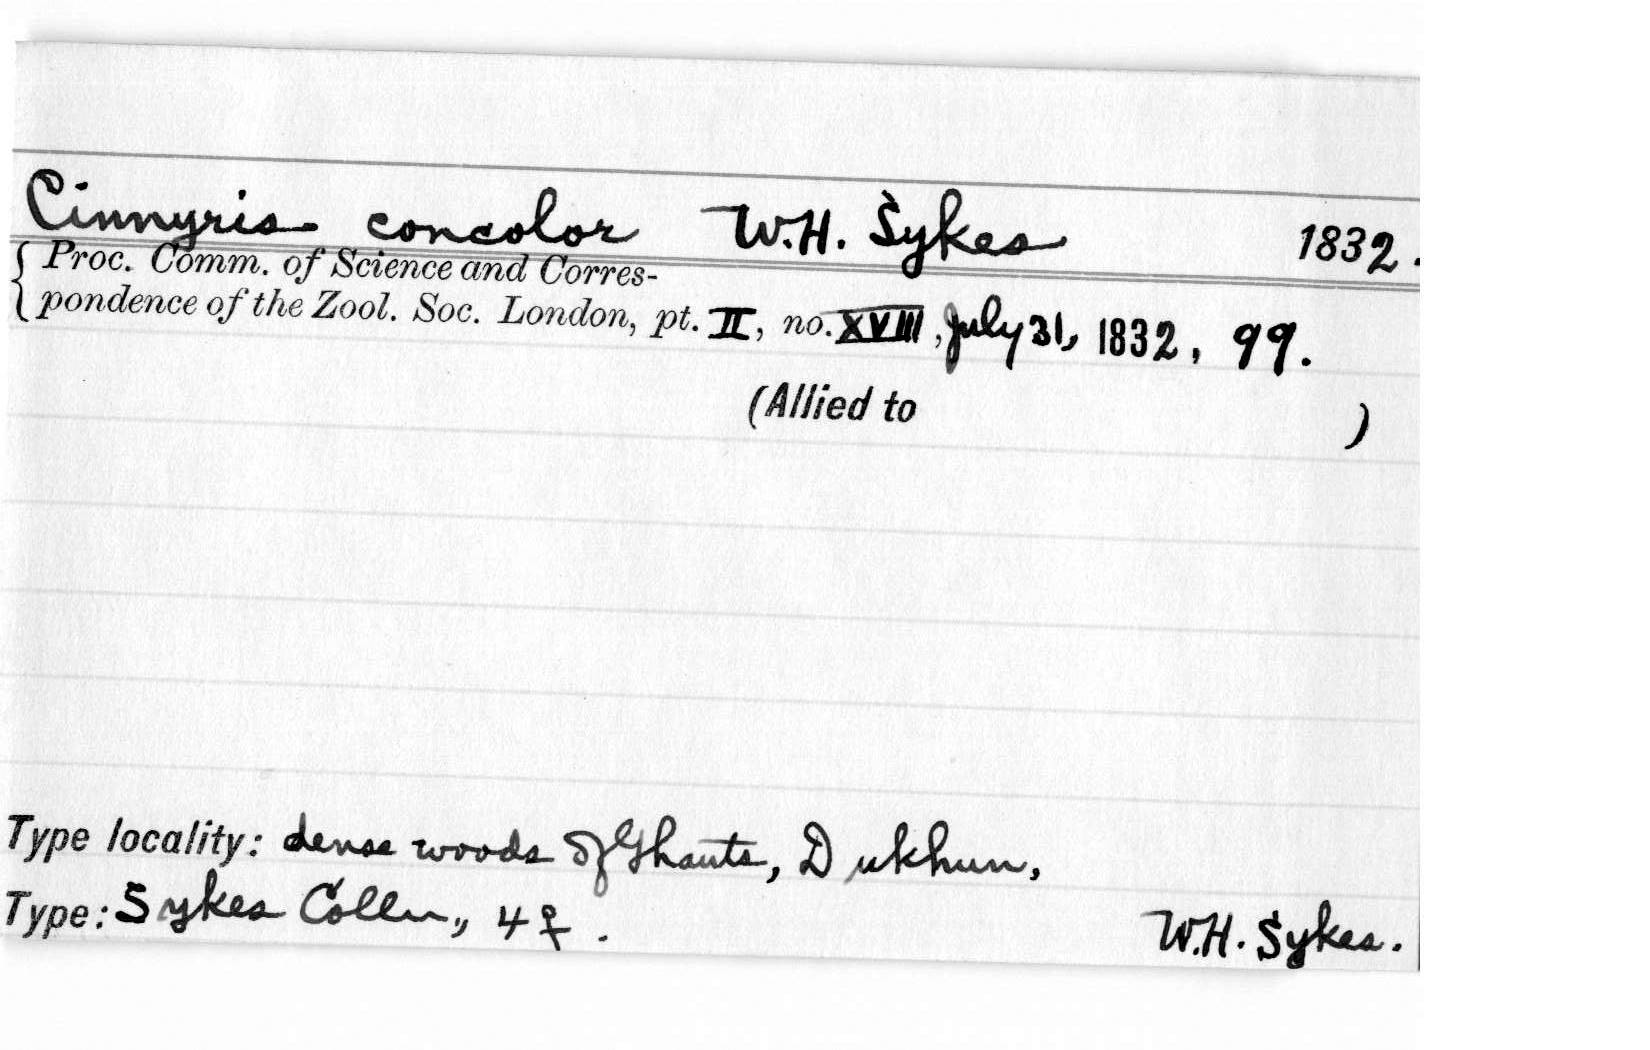 Cinnyris concolor W.H. Sykes 1832.
Proc. Comm. of Science and Corres-
pondence of the Zool. Soc. London, pt. II, no. XVIII, July 31, 1832, 99.
(Allied to )
Type locality: dense woods of Ghauts, Dukhun,
Type: Sykes Colln., 4♀. W.H. Sykes.